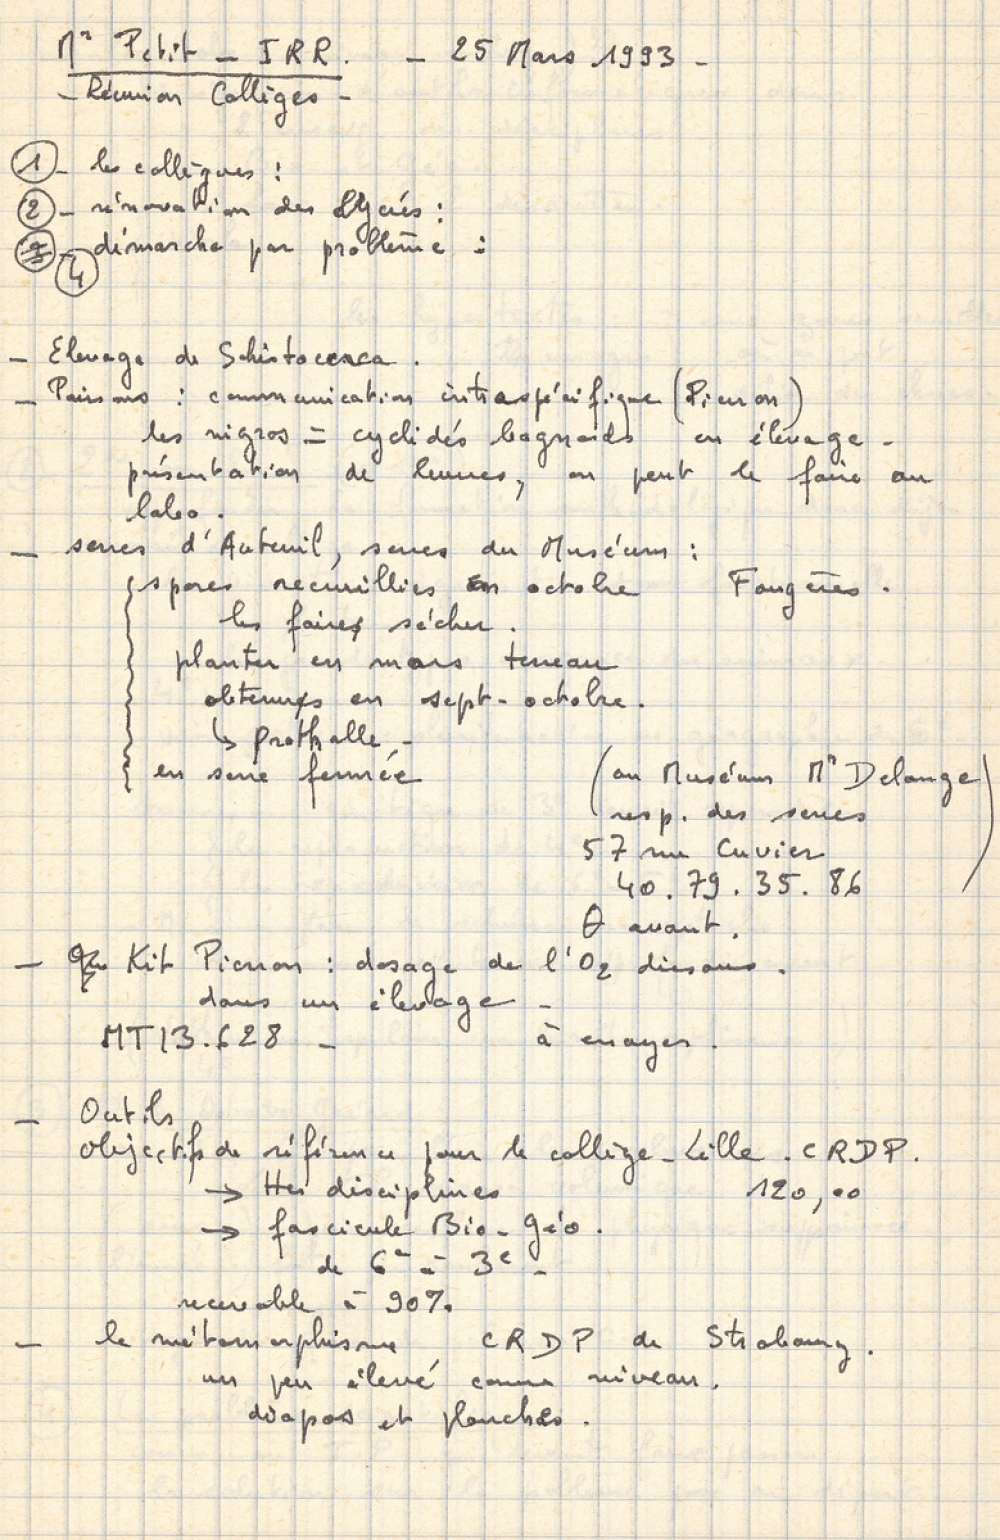 Mr Petit - IRR. - 25 Mars 1993 -
- Réunion Collèges -
1 - les collègues :
2 - rénovation des lycées :
4 - démarche par problème :
- Elevage de Schistocerca.
- Poissons : communication intraspécifique (Pierron)
les nigros = cyclidés bagnards en élevage -
présentation de leurres, on peut le faire au
labo.
- serres d'Auteuil, serres du Muséum :
spores recueillies en octobre Fougères.
les faire sécher.
planter en mars terreau
obtenus en sept-octobre.
↳ prothalle -
en serre fermée
(au Muséum Mr Delange)
resp. des serres
57 rue Cuvier
40.79.35.86
avant.
- Kit Pierron : dosage de l'O2 dissous.
dans un élevage -
MT13.628 - à essayer.
- Outils
objectifs de référence pour le collège - Lille. CRDP.
→ ttes disciplines 120,00
→ fascicule Bio-géo.
de 6e à 3e -
recevable à 90%.
- le métamorphisme CRDP de Strasbourg.
un peu élevé comme niveau.
diapos et planches.